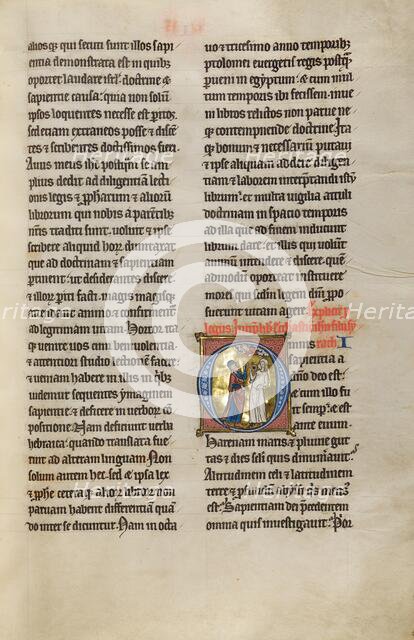 alios q; qui secuti sunt illos sapi
entia demonstrata est in quib;
oportet laudare isrl doctrine &
sapientie causa: quia non solum
ipsos loquentes necesse est
sed etiam extraneos posse & discen
tes & scribentes doctissimos fieri.
Auus meus postquam
plius dedit ad diligentiam lecti
onis legis & pphetarum & aliorum
librorum qui nobis a parentib;
nris traditi sunt: uoluit & ipse
scribere aliquid
que ad doctrinam & sapientiam
ptinent: ut desiderantes discere
& illorum piti facti magis magisq;
& confirment
ad legitimam uitam. Hortor ita
q; uenire uos cum beniuolentia
& attentiori studio lectionem facere:
& ueniam habere in illis in
uidemur sequentes ymaginem
sapientie & deficere in uerborum com
positione. Nam deficiunt uerba
hebraica: quando translata fue
rint ad alteram linguam. Non
solum autem hec. sed & ipsa lex
& pphe cetera q; aliorum librorum non
paruam habent differentiam quan
do inter se dicuntur. Nam in octa
uo & tricesimo anno temporib;
ptolomei euergetis regis postq
pueni in egyptum: & cum mul
tum temporis ibi fecissem. inue
ni libros relictos non parue ne
q; contempnende doctrine. Ita
q; bonum & necessarium putaui
& ipse aliquam addere diligen
tiam & laborem interpretandi istum
librum: & multa uigilia attuli
doctrinam in spacio temporis
ad illa que ad finem inducunt
librum dare: & illis qui uolunt
animum intendere & discere quem
admodum oporteat instruere
mores qui scdm legem dni ppo
suerint uitam agere. Explicit
filii syrach
Omnis
sapientia a
dno deo est:
&
fuit semp: & est
ante euum.
Harenam maris & pluuie gut
tas & dies seli quis dinumerauit.
Altitudinem celi & latitudinem
terre & pfundum abyssi quis mensus
est. Sapientiam dei precedentem
omnia quis inuestigauit. Pri
Heritage